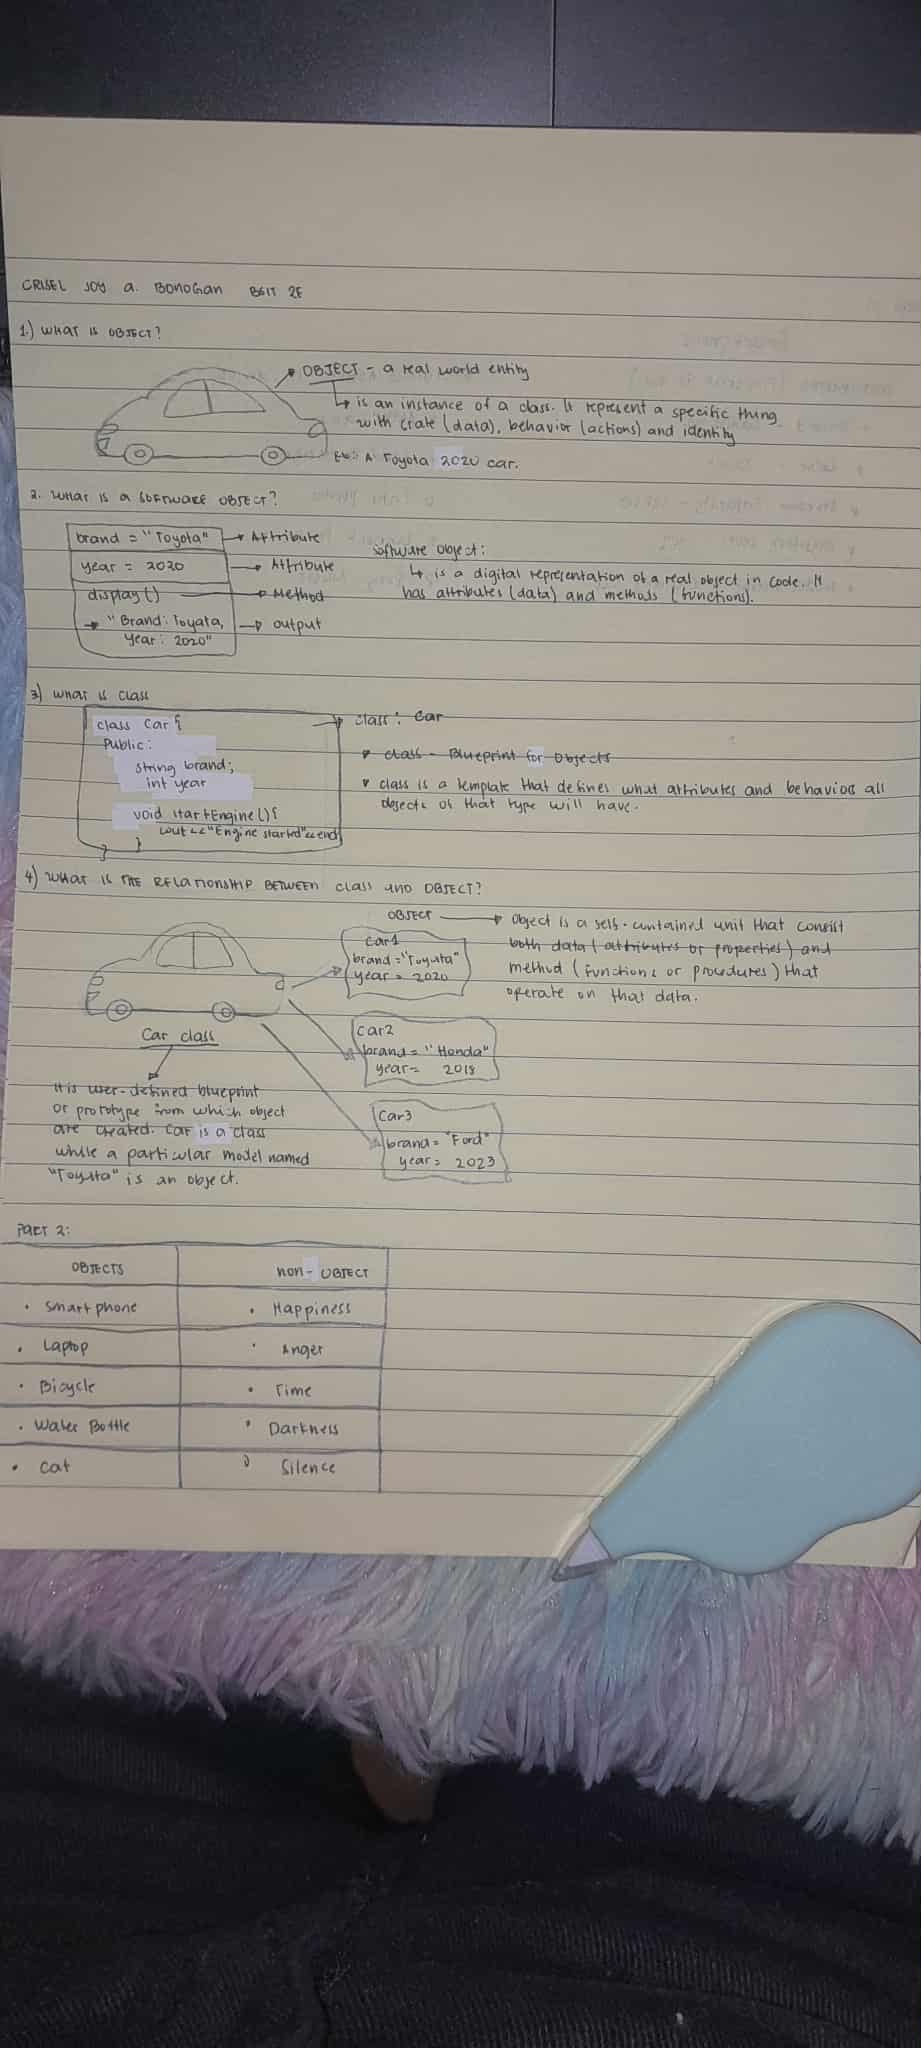 CRISEL JOY A. BONOGAN BSIT 2E
1.) WHAT IS OBJECT?
OBJECT - a real world entity
is an instance of a class. It represent a specific thing
with crate (data), behavior (actions) and identity
Ex: A Toyota 2020 car.
2. WHAT IS A SOFTWARE OBJECT?
brand = "Toyota" Attribute
year = 2020 Attribute
display() Method
"Brand: Toyata, output
Year: 2020"
Software object:
is a digital representation of a real object in code. It
has attributes (data) and methods (functions).
3) What is class
class Car {
Public:
string brand;
int year
void startEngine() {
cout << "Engine started" << end
}
}
class: Car
class - Blueprint for Objects
class is a template that defines what attributes and behaviors all
objects of that type will have.
4) WHAT IS THE RELATIONSHIP BETWEEN CLASS AND OBJECT?
OBJECT
Car1
brand = "Toyota"
year = 2020
Object is a self-contained unit that consist
both data (attributes or properties) and
method (functions or procedures) that
operate on that data.
Car2
brand = "Honda"
year = 2018
Car3
brand = "Ford"
year = 2023
Car class
It is user-defined blueprint
or prototype from which object
are created. Car is a class
while a particular model named
"Toyota" is an object.
PART 2:
OBJECTS non- OBJECT
• Smartphone • Happiness
• Laptop • Anger
• Bicycle • Time
• Water Bottle • Darkness
• Cat • Silence